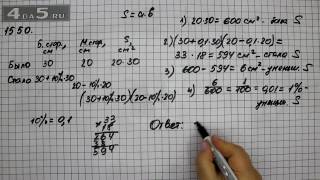 *adse.ru
1550.
S = a·b
Б.стор, см
М.стор, см
S, см²
Было 30 20 20·30
Стало 30+10%·30
20-10%·20
(30+10%·30)(20-10%·20)
10% = 0,1
×33
18
264
33
594
1) 20·30 = 600 см² - была S
2) (30+0,1·30)(20-0,1·20) =
33·18 = 594 см² - стало S
3) 600 - 594 = 6 см² - уменьш. S
4) 6/600 = 1/100 = 0,01 = 1% -
уменьш. S
Ответ: